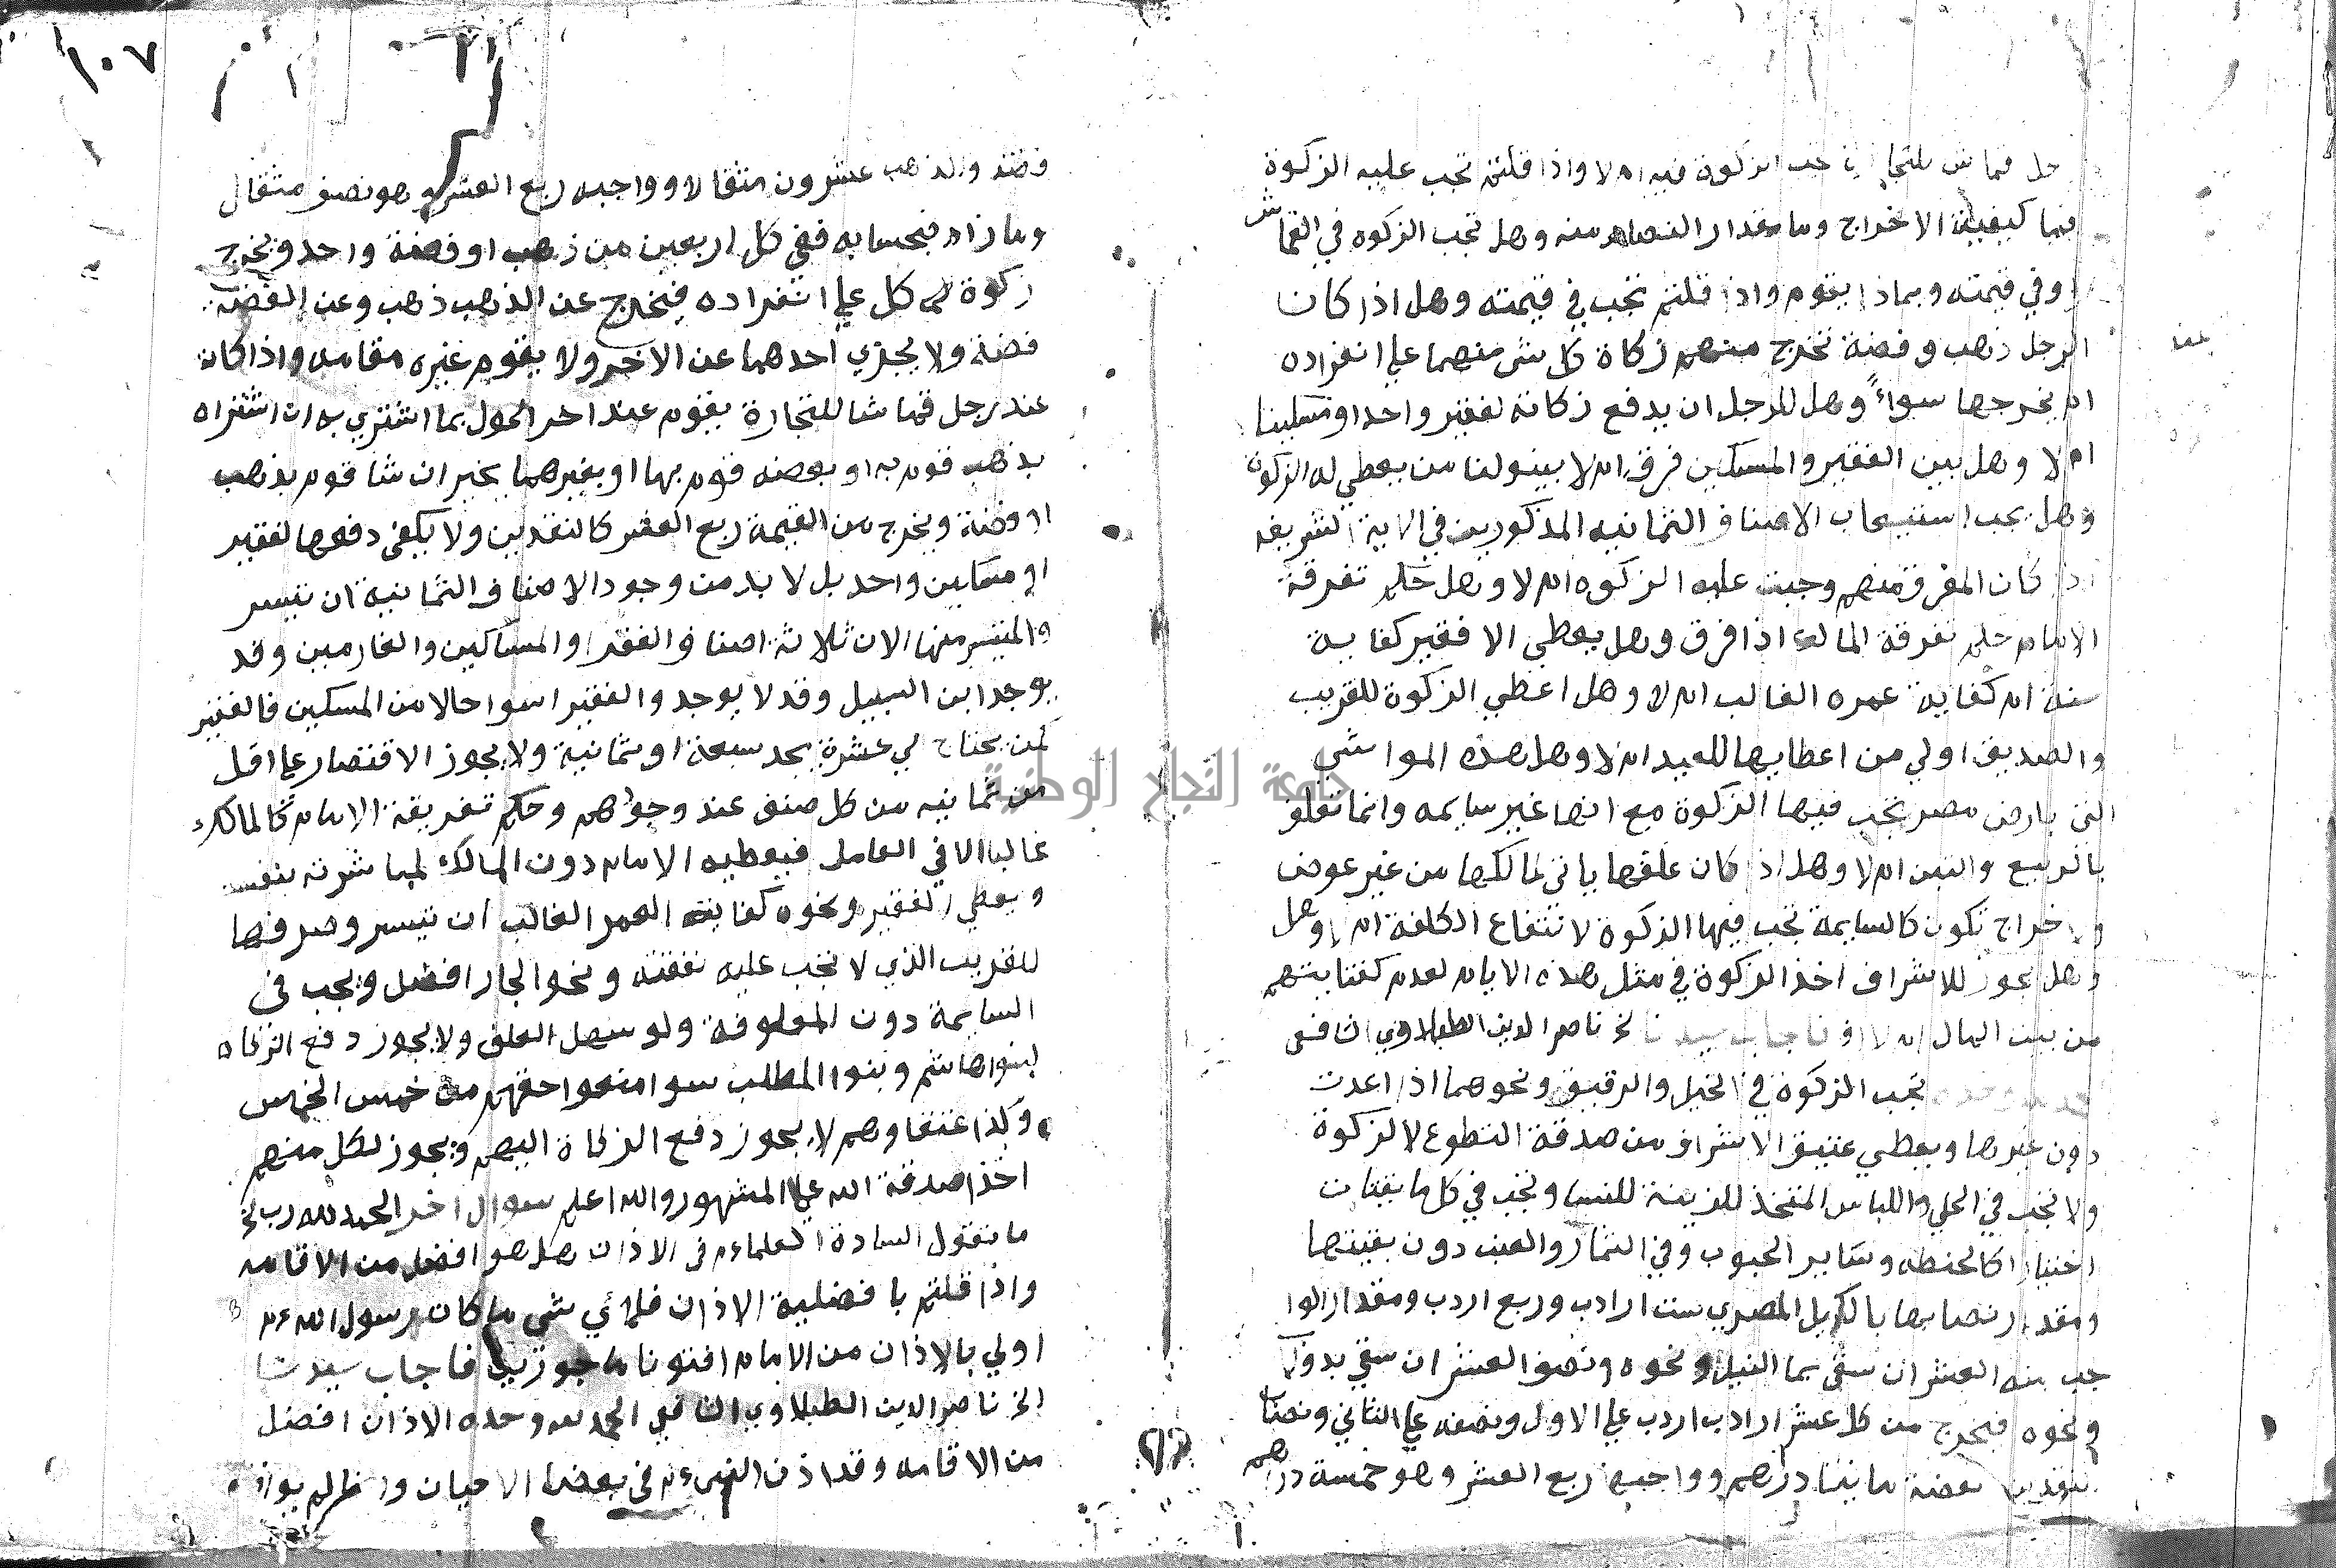 فيه ام لا واذا قلتم تجب عليه الزكوة
فما كيفية الاخراج وما مقدار النصاب منه وهل تجب الزكوه في القماش
او في قيمته وبماذا يقوم واذا قلتم تجب في قيمته وهل اذا كان
الرجل ذهب وفضة تخرج منهم زكاة كل شي منهما علي انفراده
ام يخرجها سواءً وهل للرجل ان يدفع زكاته لفقير واحد او مسكينا
ام لا وهل بين الفقير والمسكين فرق ام لا بينو لنا من يعطي له الزكوة
وهل يجب استيعاب الاصناف الثمانيه المذكورين في الاية الشريفه
اذا كان المفرق منهم وجبت عليه الزكوه ام لا وهل حكم تفرقة
الامام حكم تفرقة المالك اذا فرق وهل يعطي الا فقير كفاية
سنة ام كفاية عمره الغالب ام لا وهل اعطي الزكوة للقريب
والصديق اولي من اعطايها للبعيد ام لا وهل هذه المواشي
التي بارض مصر تجب فيها الزكوة مع انها غير سايمه وانما تعلف
بالربيع والتبن ام لا وهل اذا كان علفها ياتي لمالكها من غير عوض
ولا خراج تكون كالسايمة تجب فيها الزكوة لانتفاع الكلفة ام لا وهل
وهل يجوز للاشراف اخذ الزكوة في مثل هذه الايام لعدم كفايتهم
من بيت المال ام لا افتونا فاجاب سيدنا الخ ناصر الدين الطبلاوي الشافعي
تجب الزكوة في الخيل والرقيق ونحوهما اذا اعدت
دون غيرها ويعطي عتيق الاشراف من صدقة التطوع لا الزكوة
ولا تجب في الحلي واللباس المتخذ للزينة للنسا وتجب في كل ما يقتات
اختيارا كالحنطه وساير الحبوب وفي الثمار والعنب دون بقيتها
ومقدار نصابها بالكيل المصري ست ارادب وربع اردب ومقدار الوا
جب منه العشر ان سقي بما النيل ونحوه ونصف العشر ان سقي بدولاب
ونحوه فيخرج من كل عشر ارادب اردب علي الاول ونصفه علي الثاني ونصاب
النقدين فضة مايتا درهم وواجبه ربع العشر وهو خمسة دراهم
١٠٧
فضة والذهب عشرون مثقالا وواجبه ربع العشر وهو نصف مثقال
وما زاد فبحسابه ففي كل اربعين من ذهب او فضة واحد ويخرج
زكوة كل علي انفراده فيخرج عن الذهب ذهب وعن الفضة
فضة ولا يجزي احدهما عن الاخر ولا يقوم غيره مقامه واذا كان
عند رجل قماشا للتجارة يقوم عند اخر الحول بما اشتري به ان اشتراه
بذهب قوم به او بفضة قوم بها او بغيرهما يخير ان شا قوم بذهب
او فضة ويخرج من القيمة ربع العشر كالنقدين ولا يكفي دفعها لفقير
او مسكين واحد بل لا بد من وجود الاصناف الثمانية ان تيسر
والمتيسر منها الان ثلاثة اصناف الفقرا والمساكين والغارمين وقد
يوجد ابن السبيل وقد لا يوجد والفقير اسوا حالا من المسكين فالفقير
كمن يحتاج لي عشرة يجد سبعة او ثمانية ولا يجوز الاقتصار علي اقل
من ثمانيه من كل صنف عند وجودهم وحكم تفريقة الامام كالمالك
غالبا الا في العامل فيعطيه الامام دون المالك لمباشرته بنفسه
ويعطي الفقير ونحوه كفاية العمر الغالب ان تيسر وصرفها
للقريب الذي لا تجب عليه نفقته ونحو الجار افضل وتجب في
السايمة دون المعلوفة ولو سهل العلف ولا يجوز دفع الزكاه
لبنوا هاشم وبنوا المطلب سوا منعوا حقهم من خمس الخمس
وكذا عتقاوهم لا يجوز دفع الزكاة اليهم ويجوز لكل منهم
اخذ صدقة الله علي المشهور والله اعلم سوال اخر الحمد لله رب الخ
ما تقول السادة العلماء في الاذان هل هو افضل من الاقامه
واذا قلتم بافضلية الاذان فلاي شي ما كان رسول الله ءم
اولي بالاذان من الامام افتونا ماجورين فاجاب سيدنا
الخ ناصر الدين الطبلاوي الشافعي الحمد لله وحده الاذان افضل
من الاقامه وقد اذن النبي ءم في بعض الاحيان وان لم يواظب
جامعة النجاح الوطنية